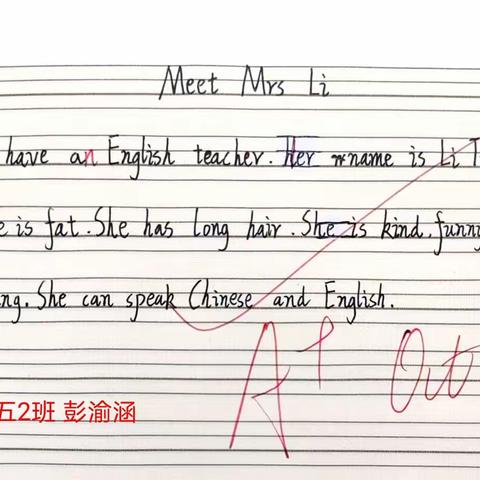 Meet Mrs Li
have an English teacher. Her name is Li
is fat. She has long hair. She is kind, funny
She can speak Chinese and English.
A+ Oct
五2班 彭渝涵